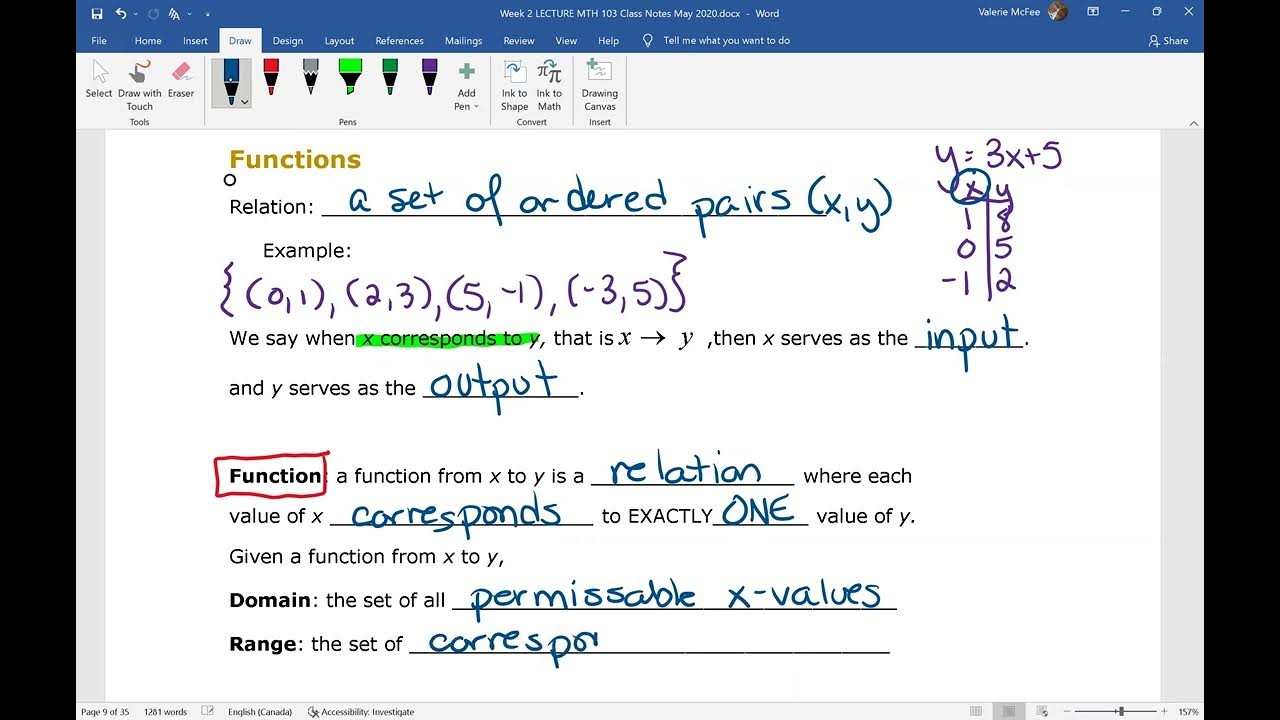 Week 2 LECTURE MTH 103 Class Notes May 2020.docx - Word
Valerie McFee
File Home Insert Draw Design Layout References Mailings Review View Help Tell me what you want to do Share
Select Draw with Touch Eraser Add Pen Ink to Shape Ink to Math Drawing Canvas
Tools Pens Convert Insert
Functions
y = 3x+5
Relation: a set of ordered pairs (x,y)
x y
1 8
Example:
0 5
{(0,1), (2,3), (5,-1), (-3,5)}
-1 2
We say when x corresponds to y, that is x → y ,then x serves as the input.
and y serves as the output.
Function: a function from x to y is a relation where each
value of x corresponds to EXACTLY ONE value of y.
Given a function from x to y,
Domain: the set of all permissable x-values
Range: the set of correspon
Page 9 of 35 1281 words English (Canada) Accessibility: Investigate 157%